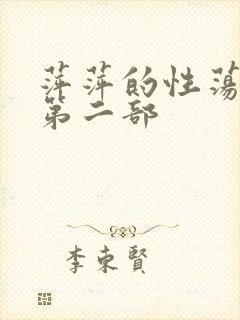 萍萍的性荡
第二部
李東賢